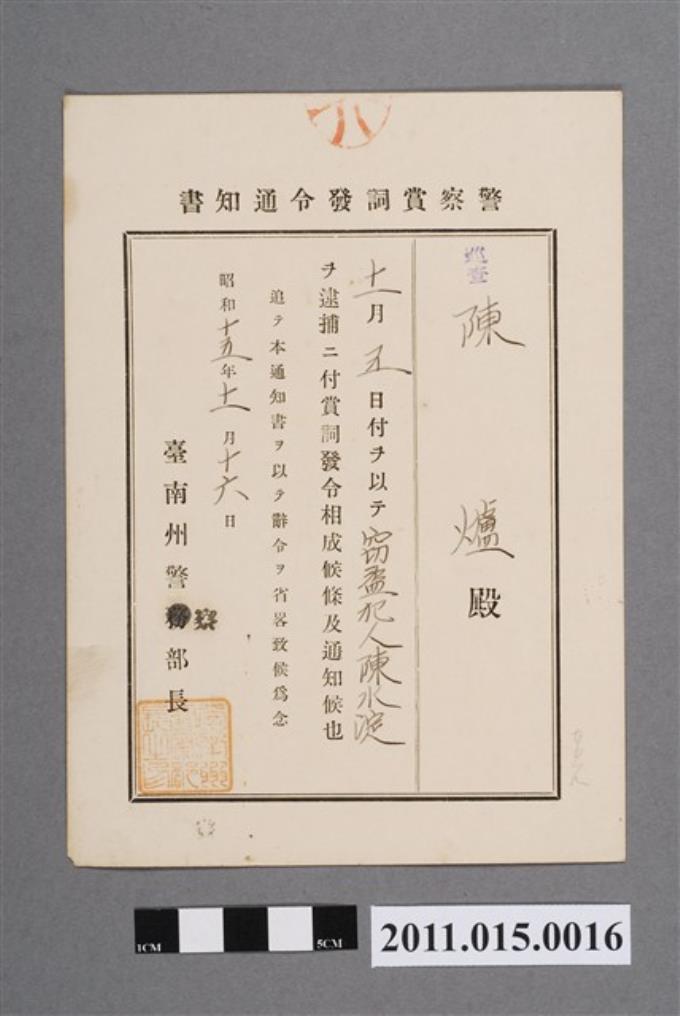 警察賞詞發令通知書
巡查 陳 爐 殿
十一月五日付ヲ以テ窃盗犯人陳水淀
ヲ逮捕ニ付賞詞發令相成候條及通知候也
追テ本通知書ヲ以テ辭令ヲ省畧致候爲念
昭和十五年十一月十六日
臺南州警察部長
2011.015.0016
1CM
5CM